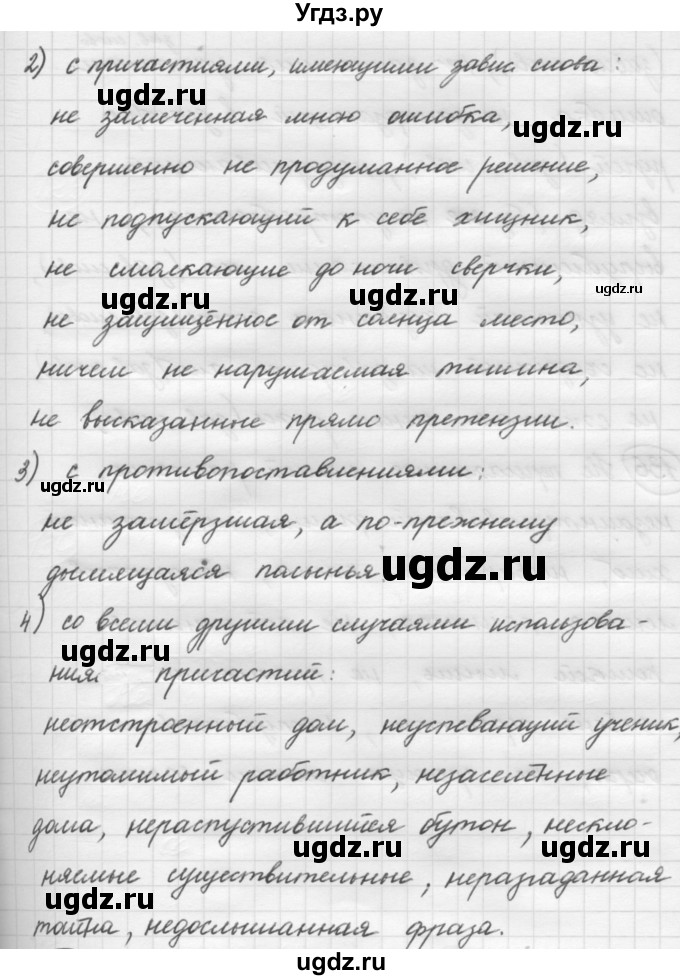 Угдз.ру
2) с причастиями, имеющими завис. слова:
ugdz.ru
не замеченная мною ошибка,
ugdz.ru
совершенно не продуманное решение,
не подпускающий к себе хищник,
не смолкающие до ночи сверчки,
ugdz.ru ugdz.ru ugdz.ru
не защищённое от солнца место,
ничем не нарушаемая тишина,
не высказанные прямо претензии.
3) с противопоставлениями:
ugdz.ru
не замёрзшая, а по-прежнему
дымящаяся полынья.
ugdz.ru
4) со всеми другими случаями использова-
ugdz.ru
ния причастий:
неотстроенный дом, неуспевающий ученик,
неутомимый работник, незаселённые
ugdz.ru ugdz.ru
дома, нераспустившийся бутон, нескло-
ugdz.ru ugdz.ru
няемые существительные, неразгаданная
ugdz.ru
тайна, недослышанная фраза.
ugdz.ru ugdz.ru